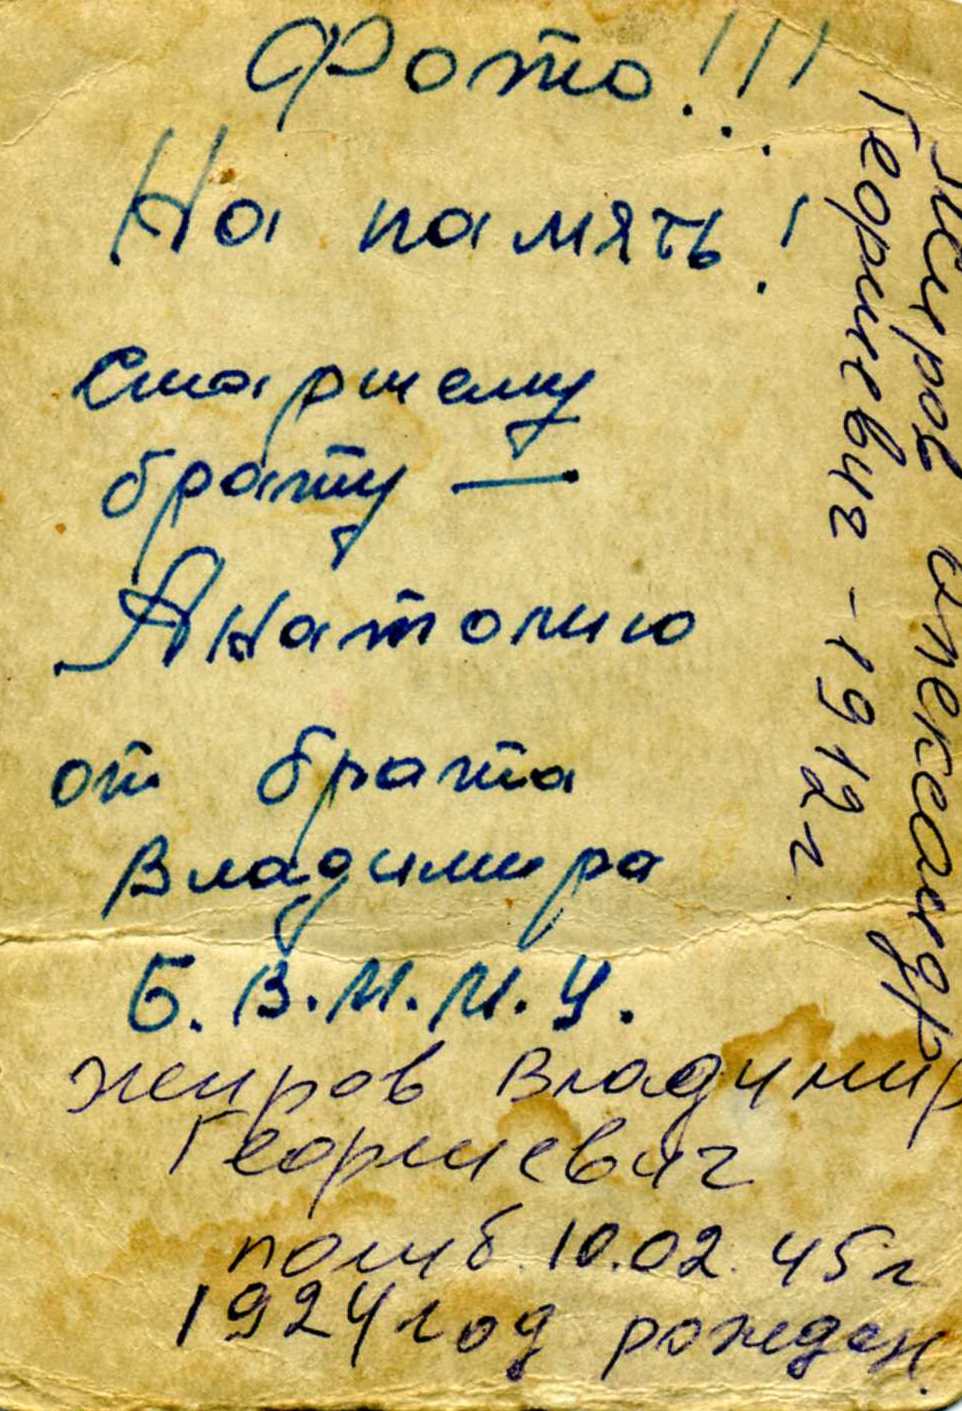 Фото!!!
На память!
Старшему
брату —
Анатолию
от брата
Владимира
Б.В.М.М.У.
Жиров Владимир
Георгиевич
погиб 10.02.45 г
1924 год рожден.
Жиров Александр
Георгиевич - 1912 г.